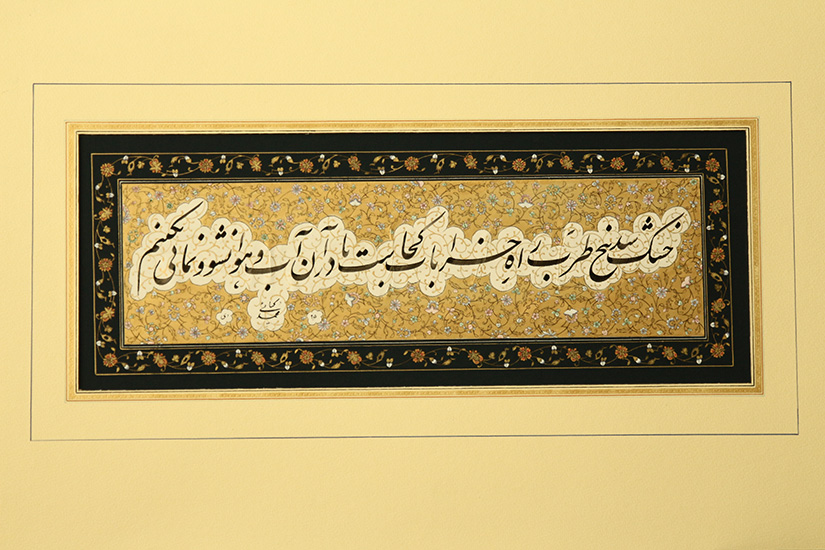 خشک شد بیخ طرب راه خرابات کجاست تا در آن آب و هوا نشو و نمائی بکنیم